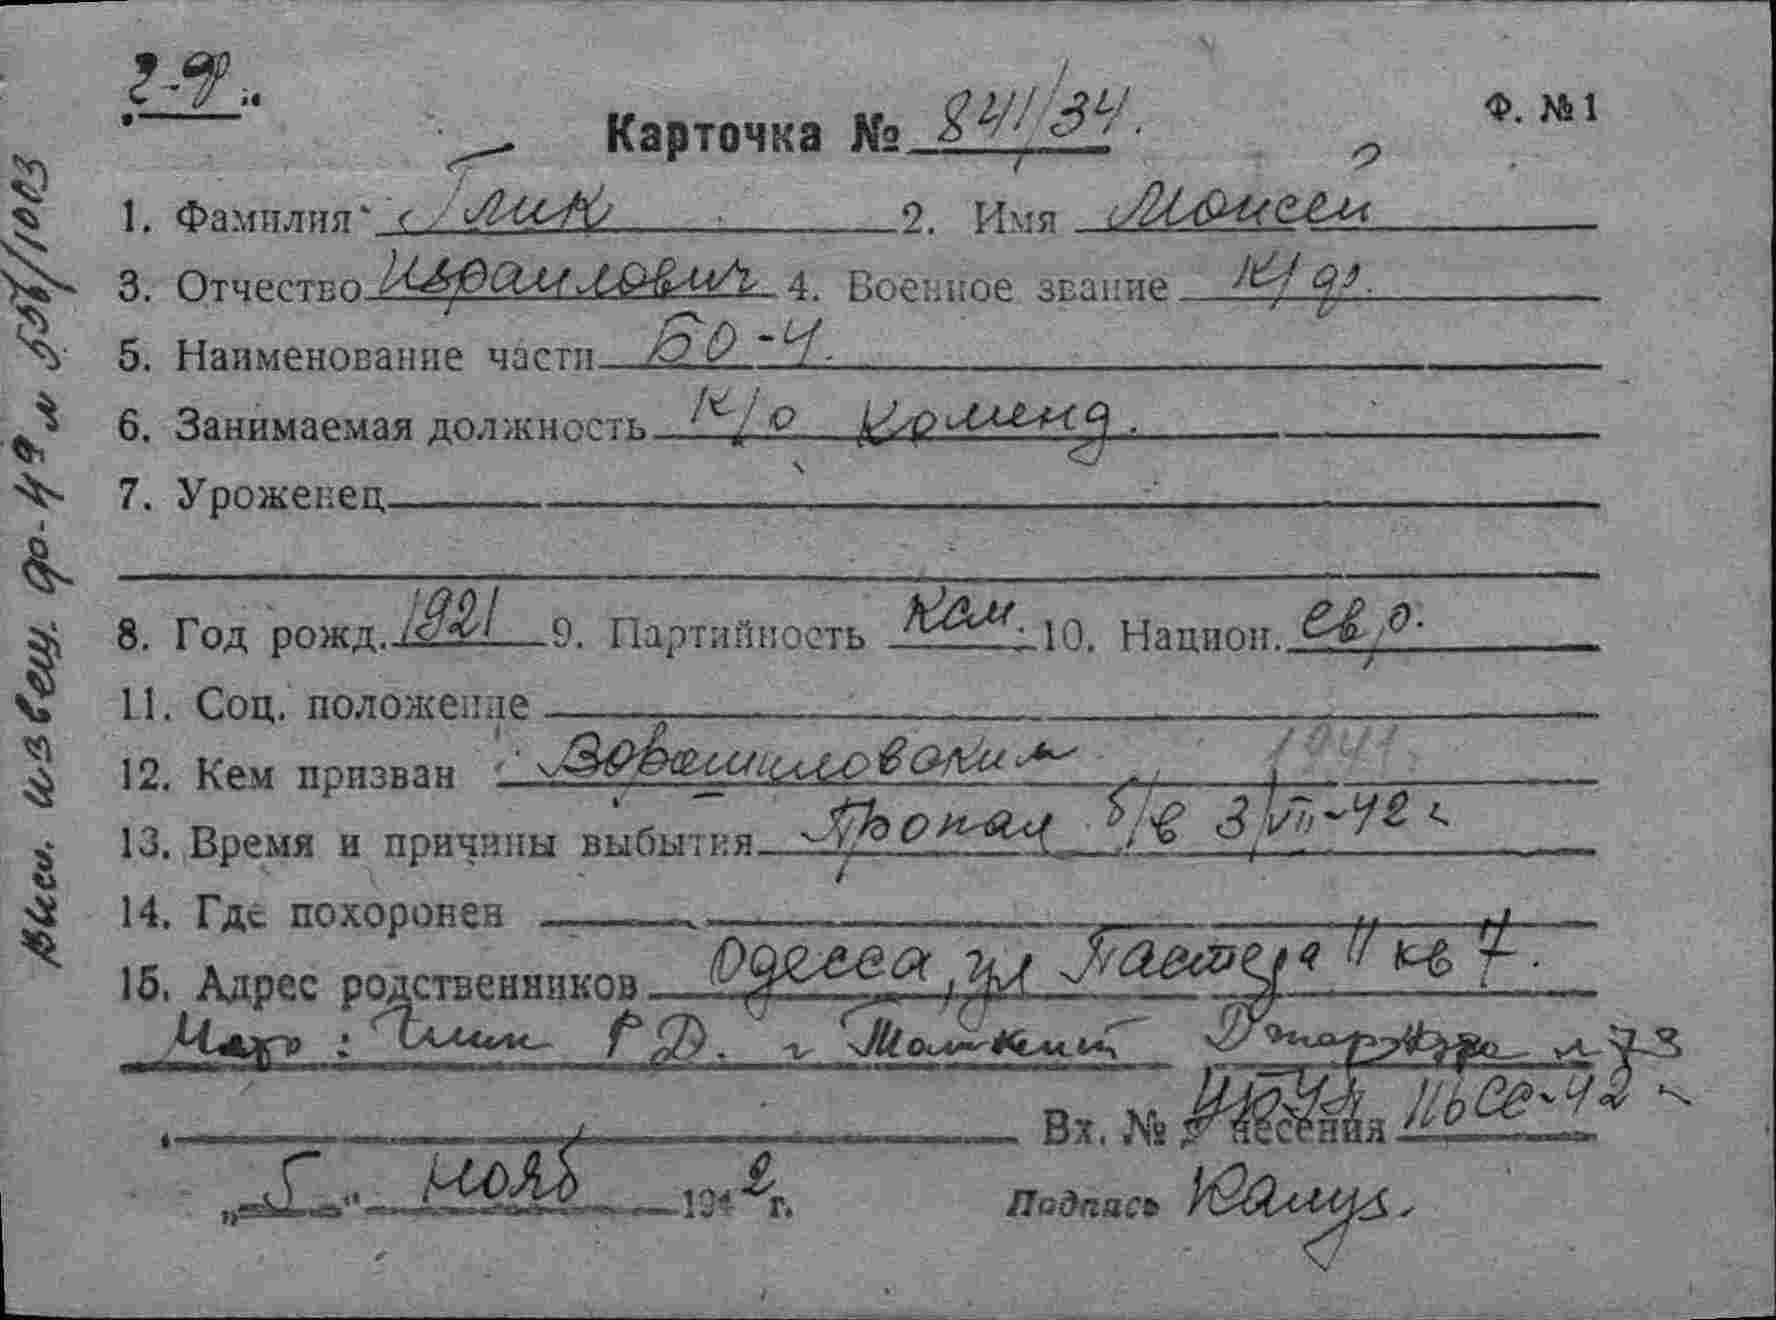 2-ф..
Карточка № 841/34.
Ф. № 1
1. Фамилия Глик 2. Имя Моисей
3. Отчество Израилович 4. Военное звание к/ф.
5. Наименование части БО-4.
6. Занимаемая должность к/о Коменд.
7. Уроженец
8. Год рожд. 1921 9. Партийность Ксм. 10. Национ. евр.
11. Соц. положение
12. Кем призван Ворошиловским 1941.
13. Время и причины выбытия Пропал б/в 3/VII-42 г
14. Где похоронен
15. Адрес родственников Одесса, ул Пастера 11 кв 7.
Мать: Глик Р Д. г Ташкент 73
Вх. № несения 42
„5“ нояб 1942 г. Подпись
извещ. 49